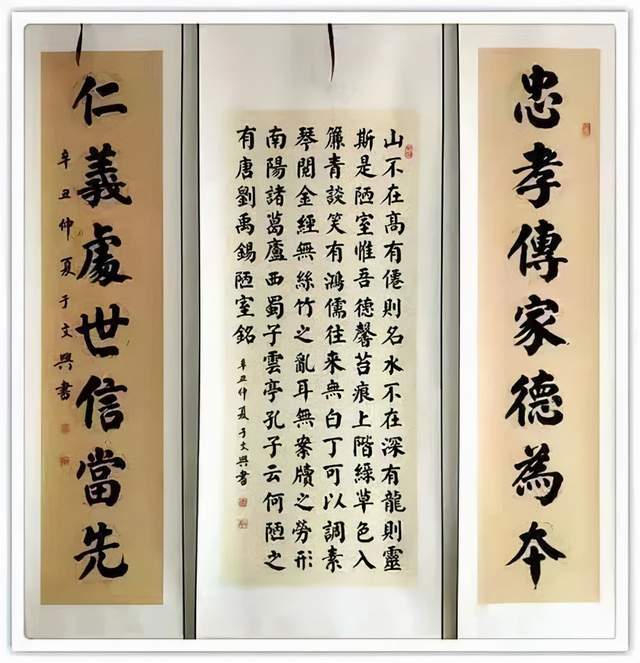 忠孝傳家德為夲
山不在髙有僊則名水不在深有龍則靈
斯是陋室惟吾德馨苔痕上階綠草色入
簾青談笑有鴻儒往来無白丁可以調素
琴閱金經無絲竹之亂耳無案牘之勞形
南陽諸葛廬西蜀子雲亭孔子云何陋之
有唐劉禹錫陋室銘
辛丑仲夏于文興書
仁義處世信當先
辛丑仲夏于文興書